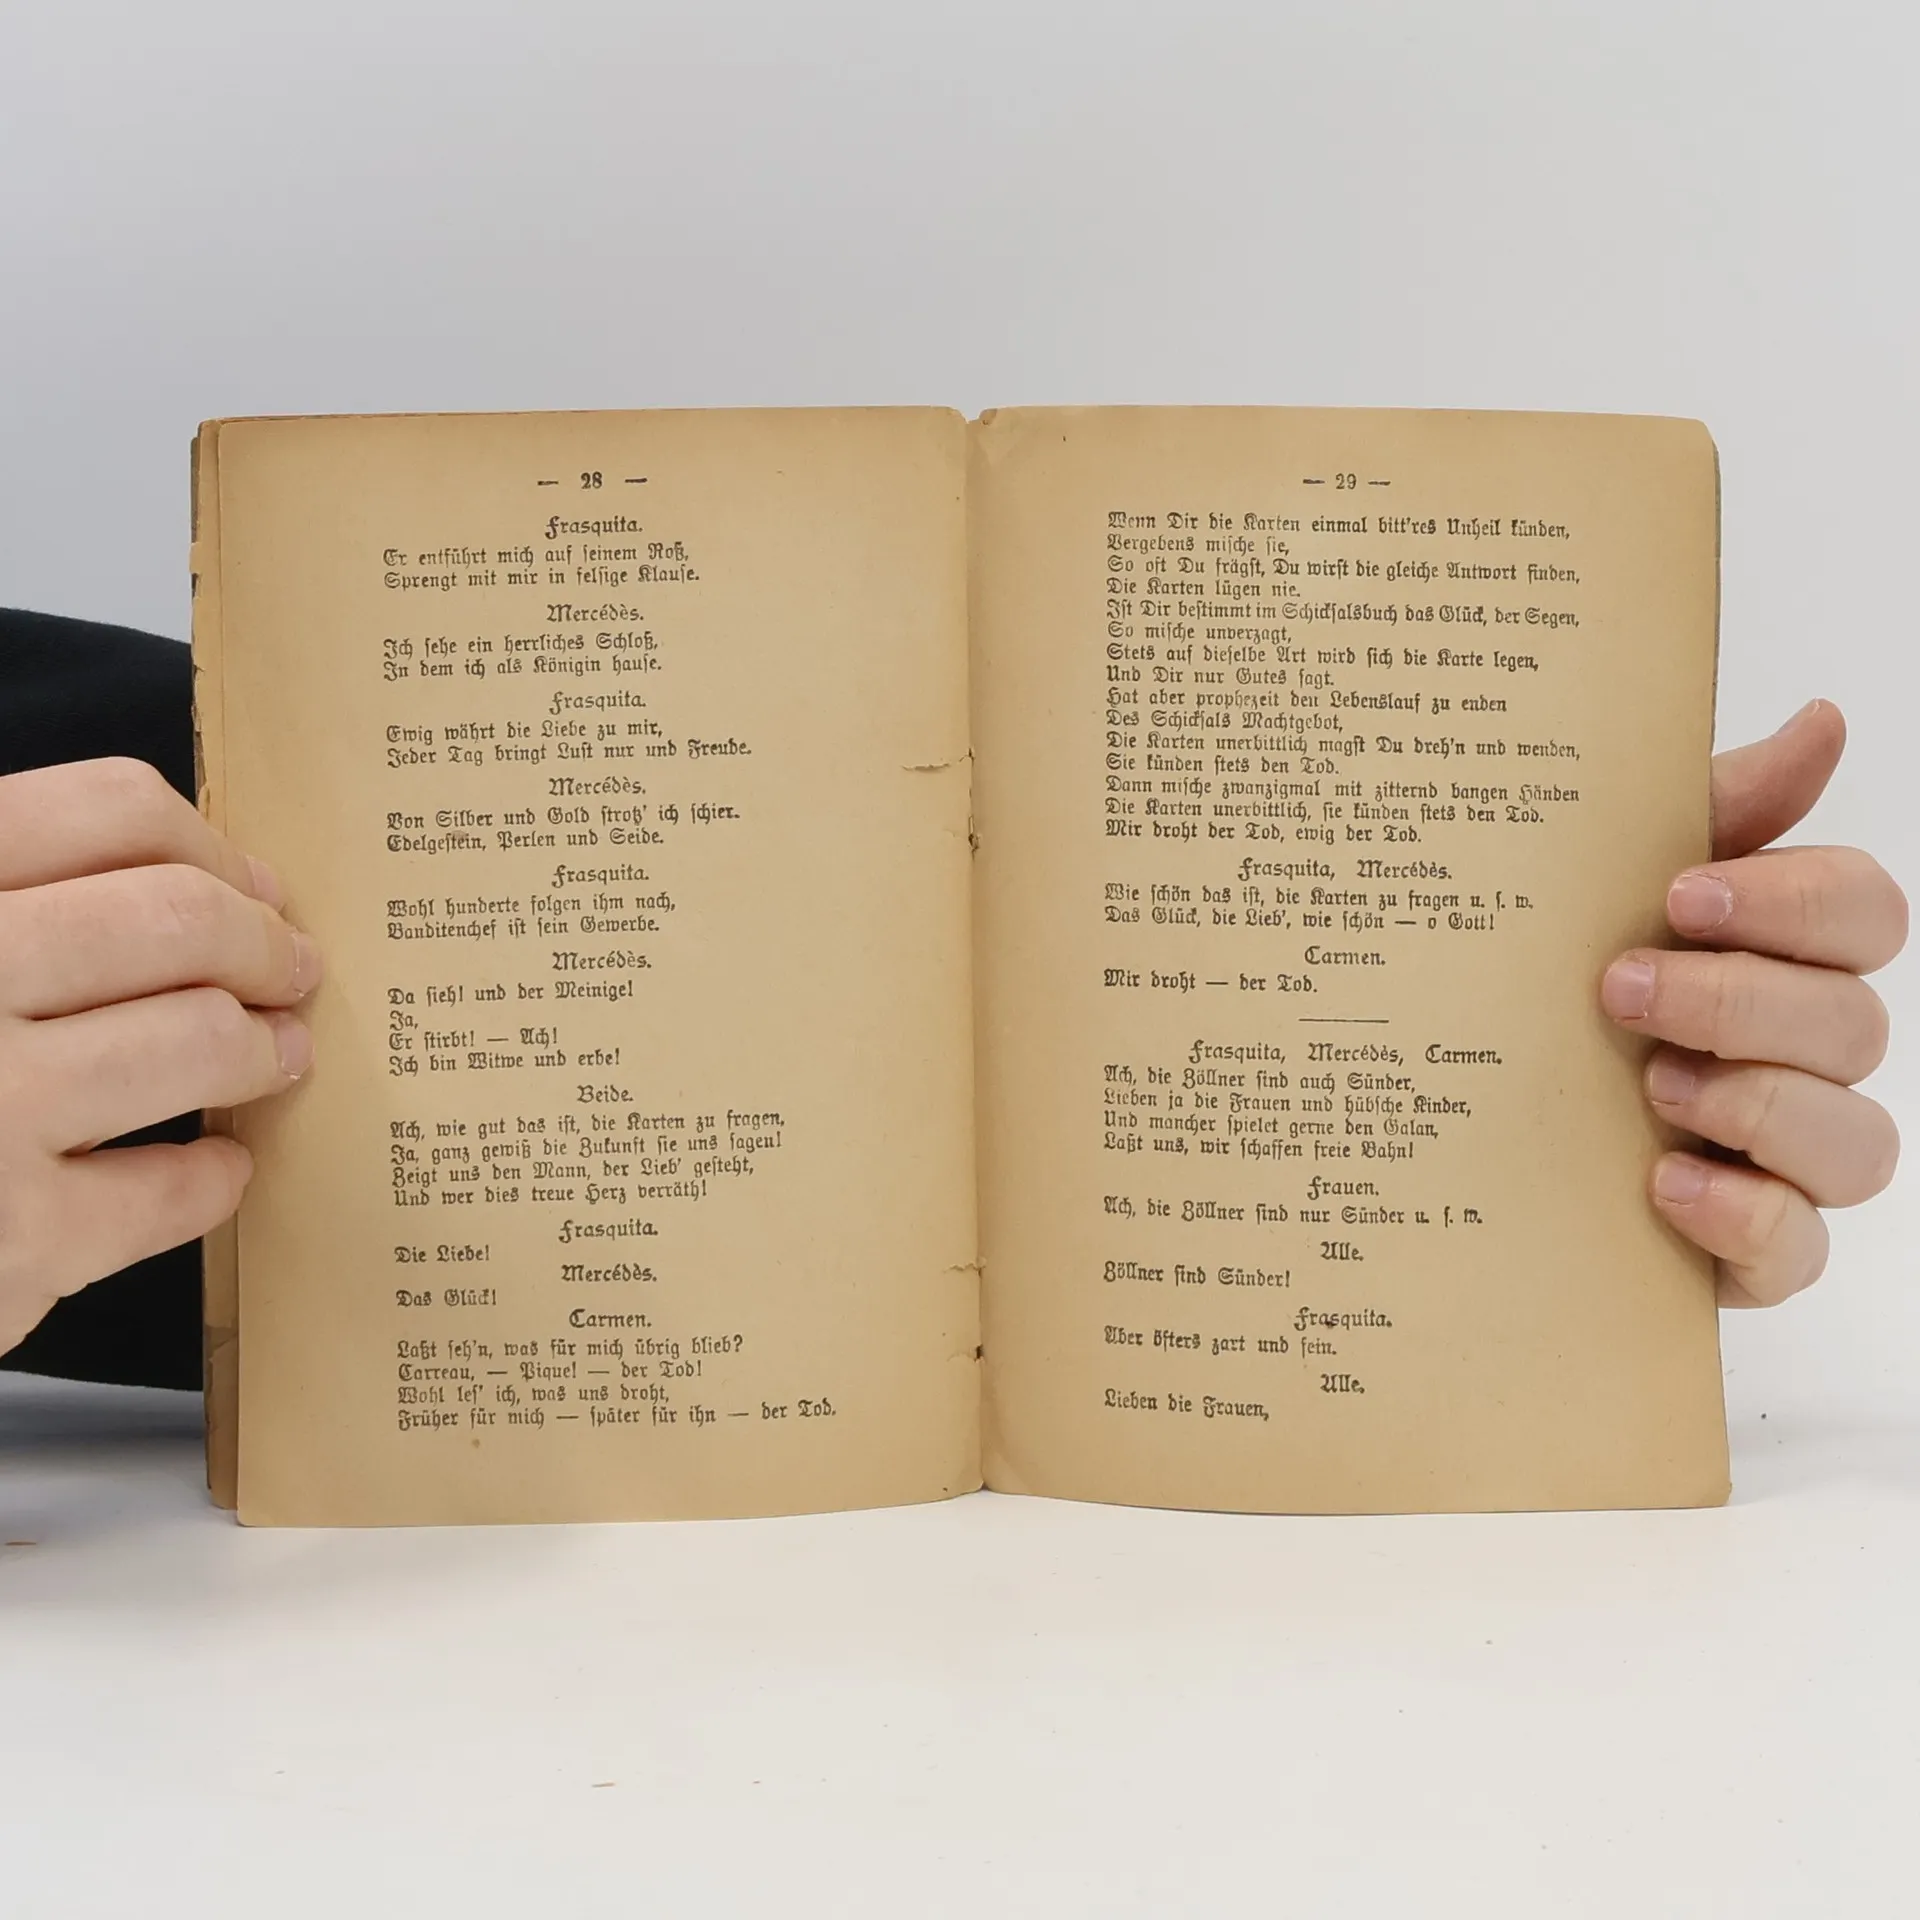 — 28 —
Frasquita.
Er entführt mich auf seinem Roß,
Sprengt mit mir in felsige Klause.
Mercédès.
Ich sehe ein herrliches Schloß,
In dem ich als Königin hause.
Frasquita.
Ewig währt die Liebe zu mir,
Jeder Tag bringt Lust nur und Freude.
Mercédès.
Von Silber und Gold strotz' ich schier.
Edelgestein, Perlen und Seide.
Frasquita.
Wohl hunderte folgen ihm nach,
Banditenchef ist sein Gewerbe.
Mercédès.
Da sieh! und der Meinige!
Ja,
Er stirbt! — Ach!
Ich bin Witwe und erbe!
Beide.
Ach, wie gut das ist, die Karten zu fragen,
Ja, ganz gewiß die Zukunft sie uns sagen!
Zeigt uns den Mann, der Lieb' gesteht,
Und wer dies treue Herz verräth!
Frasquita.
Die Liebe!
Mercédès.
Das Glück!
Carmen.
Laßt seh'n, was für mich übrig blieb?
Carreau, — Pique! — der Tod!
Wohl les' ich, was uns droht,
Früher für mich — später für ihn — der Tod.
— 29 —
Wenn Dir die Karten einmal bitt'res Unheil künden,
Vergebens mische sie,
So oft Du frägst, Du wirst die gleiche Antwort finden,
Die Karten lügen nie.
Ist Dir bestimmt im Schicksalsbuch das Glück, der Segen,
So mische unverzagt,
Stets auf dieselbe Art wird sich die Karte legen,
Und Dir nur Gutes sagt.
Hat aber prophezeit den Lebenslauf zu enden
Des Schicksals Machtgebot,
Die Karten unerbittlich magst Du dreh'n und wenden,
Sie künden stets den Tod.
Dann mische zwanzigmal mit zitternd bangen Händen
Die Karten unerbittlich, sie künden stets den Tod.
Mir droht der Tod, ewig der Tod.
Frasquita, Mercédès.
Wie schön das ist, die Karten zu fragen u. s. w.
Das Glück, die Lieb', wie schön — o Gott!
Carmen.
Mir droht — der Tod.
Frasquita, Mercédès, Carmen.
Ach, die Zöllner sind auch Sünder,
Lieben ja die Frauen und hübsche Kinder,
Und mancher spielet gerne den Galan,
Laßt uns, wir schaffen freie Bahn!
Frauen.
Ach, die Zöllner sind nur Sünder u. s. w.
Alle.
Zöllner sind Sünder!
Frasquita.
Aber öfters zart und fein.
Alle.
Lieben die Frauen,